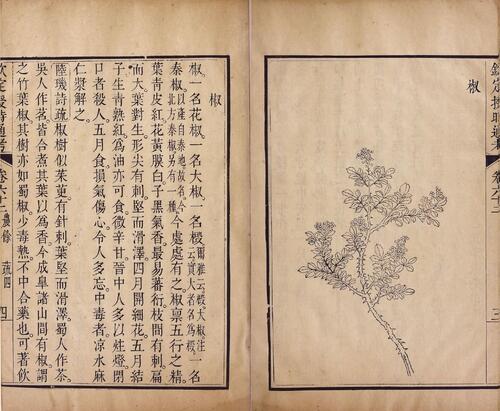 欽定授時通考 卷六十二 三
椒
椒
椒一名花椒一名大椒一名檓爾雅云檓大椒注云實大者名為檓一名
秦椒以產自秦地故名今北方秦椒另有一種今處處有之椒稟五行之精
葉青皮紅花黃膜白子黑氣香最易蕃衍枝間有刺扁
而大葉對生形尖有刺堅而滑澤四月開細花五月結
子生青熟紅為油亦可食微辛甘晉中人多以炷燈閉
口者殺人五月食損氣傷心令人多忘中毒者涼水麻
仁漿解之
陸璣詩疏椒樹似茱萸有針刺葉堅而滑澤蜀人作茶
吳人作茗皆合煮其葉以為香今成皋諸山間有椒謂
之竹葉椒其樹亦如蜀椒少毒熱不中合藥也可著飲
欽定授時通考 卷六十二 農餘 蔬四 四